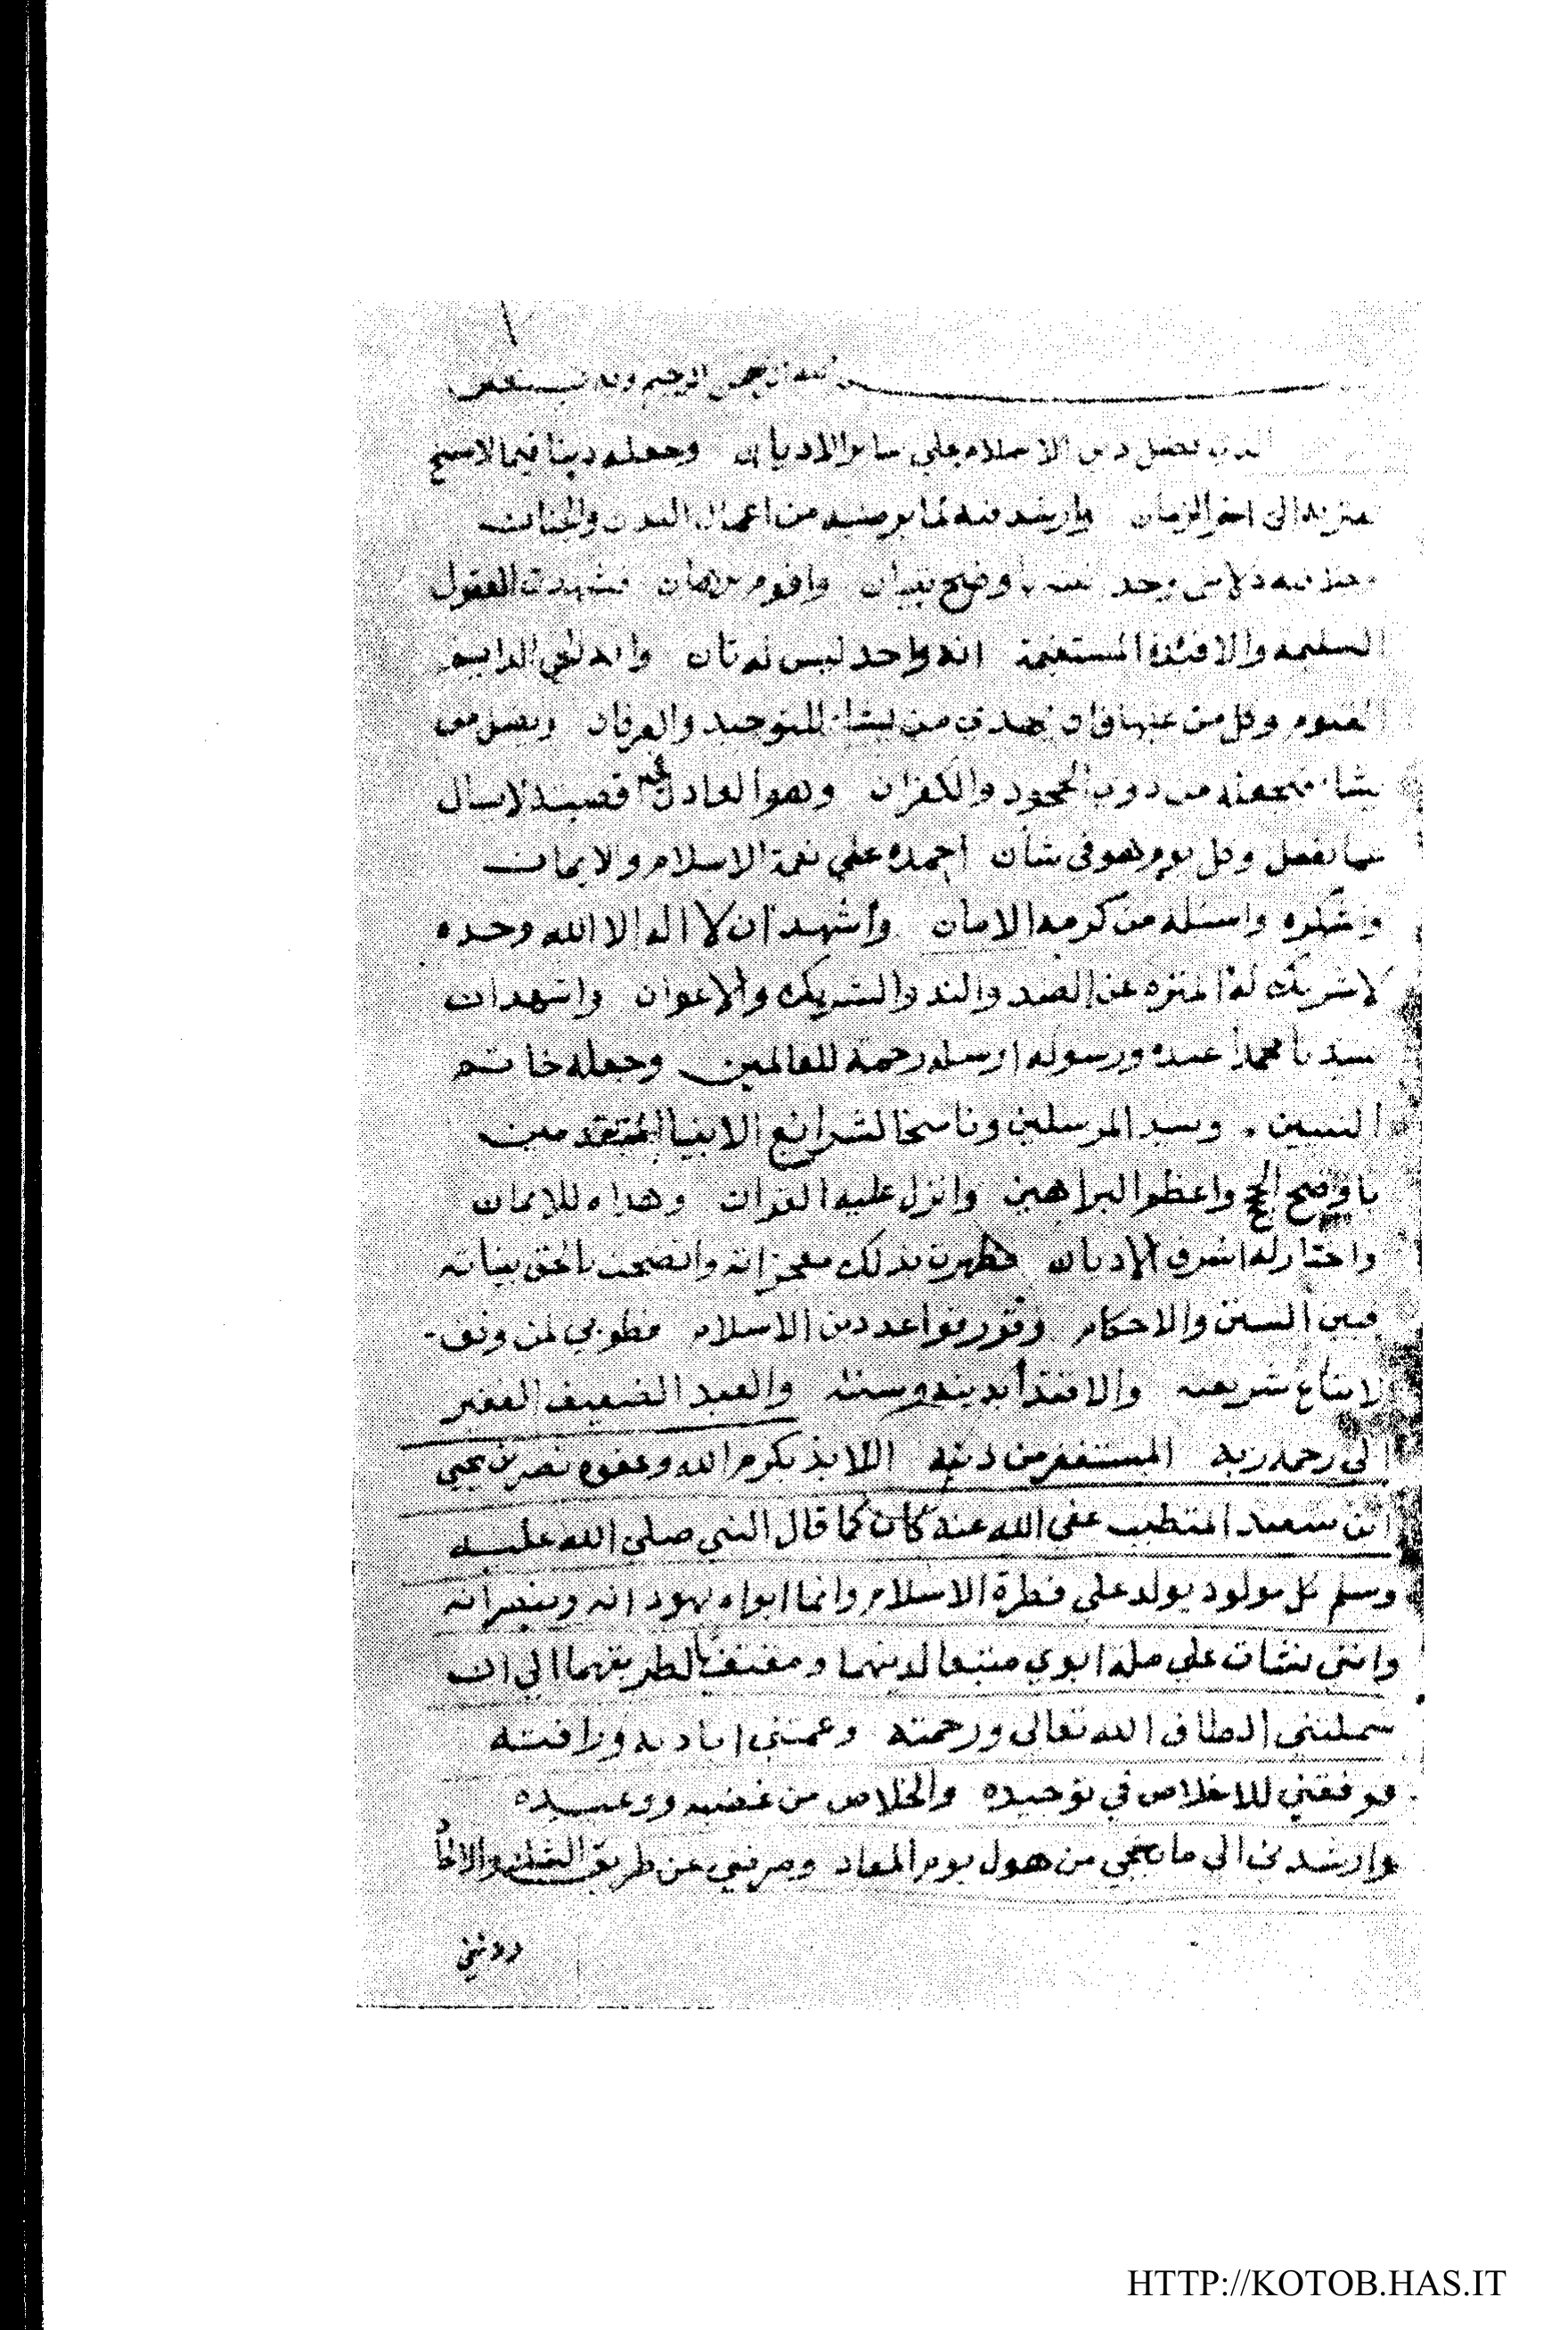 الله الرحمن الرحيم وبه نستعين
الذي فضل دين الاسلام علي سائر الاديان وجعله دينا قيما لا ينسخ
الى اخر الزمان وارشد فيه لما يرضيه من اعمال البدن والجنان
باوضح بيان واقوم برهان فشهدت العقول
السليمه والافئدة المستقيمة انه واحد ليس له ثان وانه الحي الدايم
القيوم وكل من عليها فان يهدي من يشاء للتوحيد والعرفان ويضل من
يشاء فيجعله من ذوي الجحود والكفران وهو العادل في قضيته لا يسال
عما يفعل وكل يوم هو في شأن احمده علي نعمة الاسلام والايمان
واشكره واسئله من كرمه الامان وأشهد أن لا اله الا الله وحده
لا شريك له المنزه عن الضد والند والشريك والاعوان واشهد ان
سيدنا محمداً عبده ورسوله ارسله رحمة للعالمين وجعله خاتم
النبيين . وسيد المرسلين وناسخا لشرائع الانبيا المتقدمين
باوضح الحجج واعظم البراهين وانزل عليه القران وهداه للايمان
واختار له اشرف الاديان فظهرت بذلك معجزاته واتضحت بالحق بيناته
فبين السنن والاحكام وقرر قواعد دين الاسلام فطوبي لمن وفق
لاتباع شريعته والاقتدأ بدينه وسنته والعبد الضعيف الفقير
الي رحمه ربه المستغفر من ذنبه اللايذ بكرم الله وعفوه نصر بن يحيي
ابن سعيد المتطبب عفي الله عنه كان كما قال النبي صلي الله عليه
وسلم كل مولود يولد علي فطرة الاسلام وانما ابواه يهودانه وينصرانه
وانني نشات علي مله ابوي متبعا لدينهما ومقتفيا لطريقهما الي ان
شملتني الطاف الله تعالي ورحمته وعمتني اياديه ورافته
فوفقني للاخلاص في توحيده والخلاص من غضبه ووعيده
وارشدني الي ما ينجي من هول يوم المعاد وصرفني عن طريق والالحاد
HTTP://KOTOB.HAS.IT